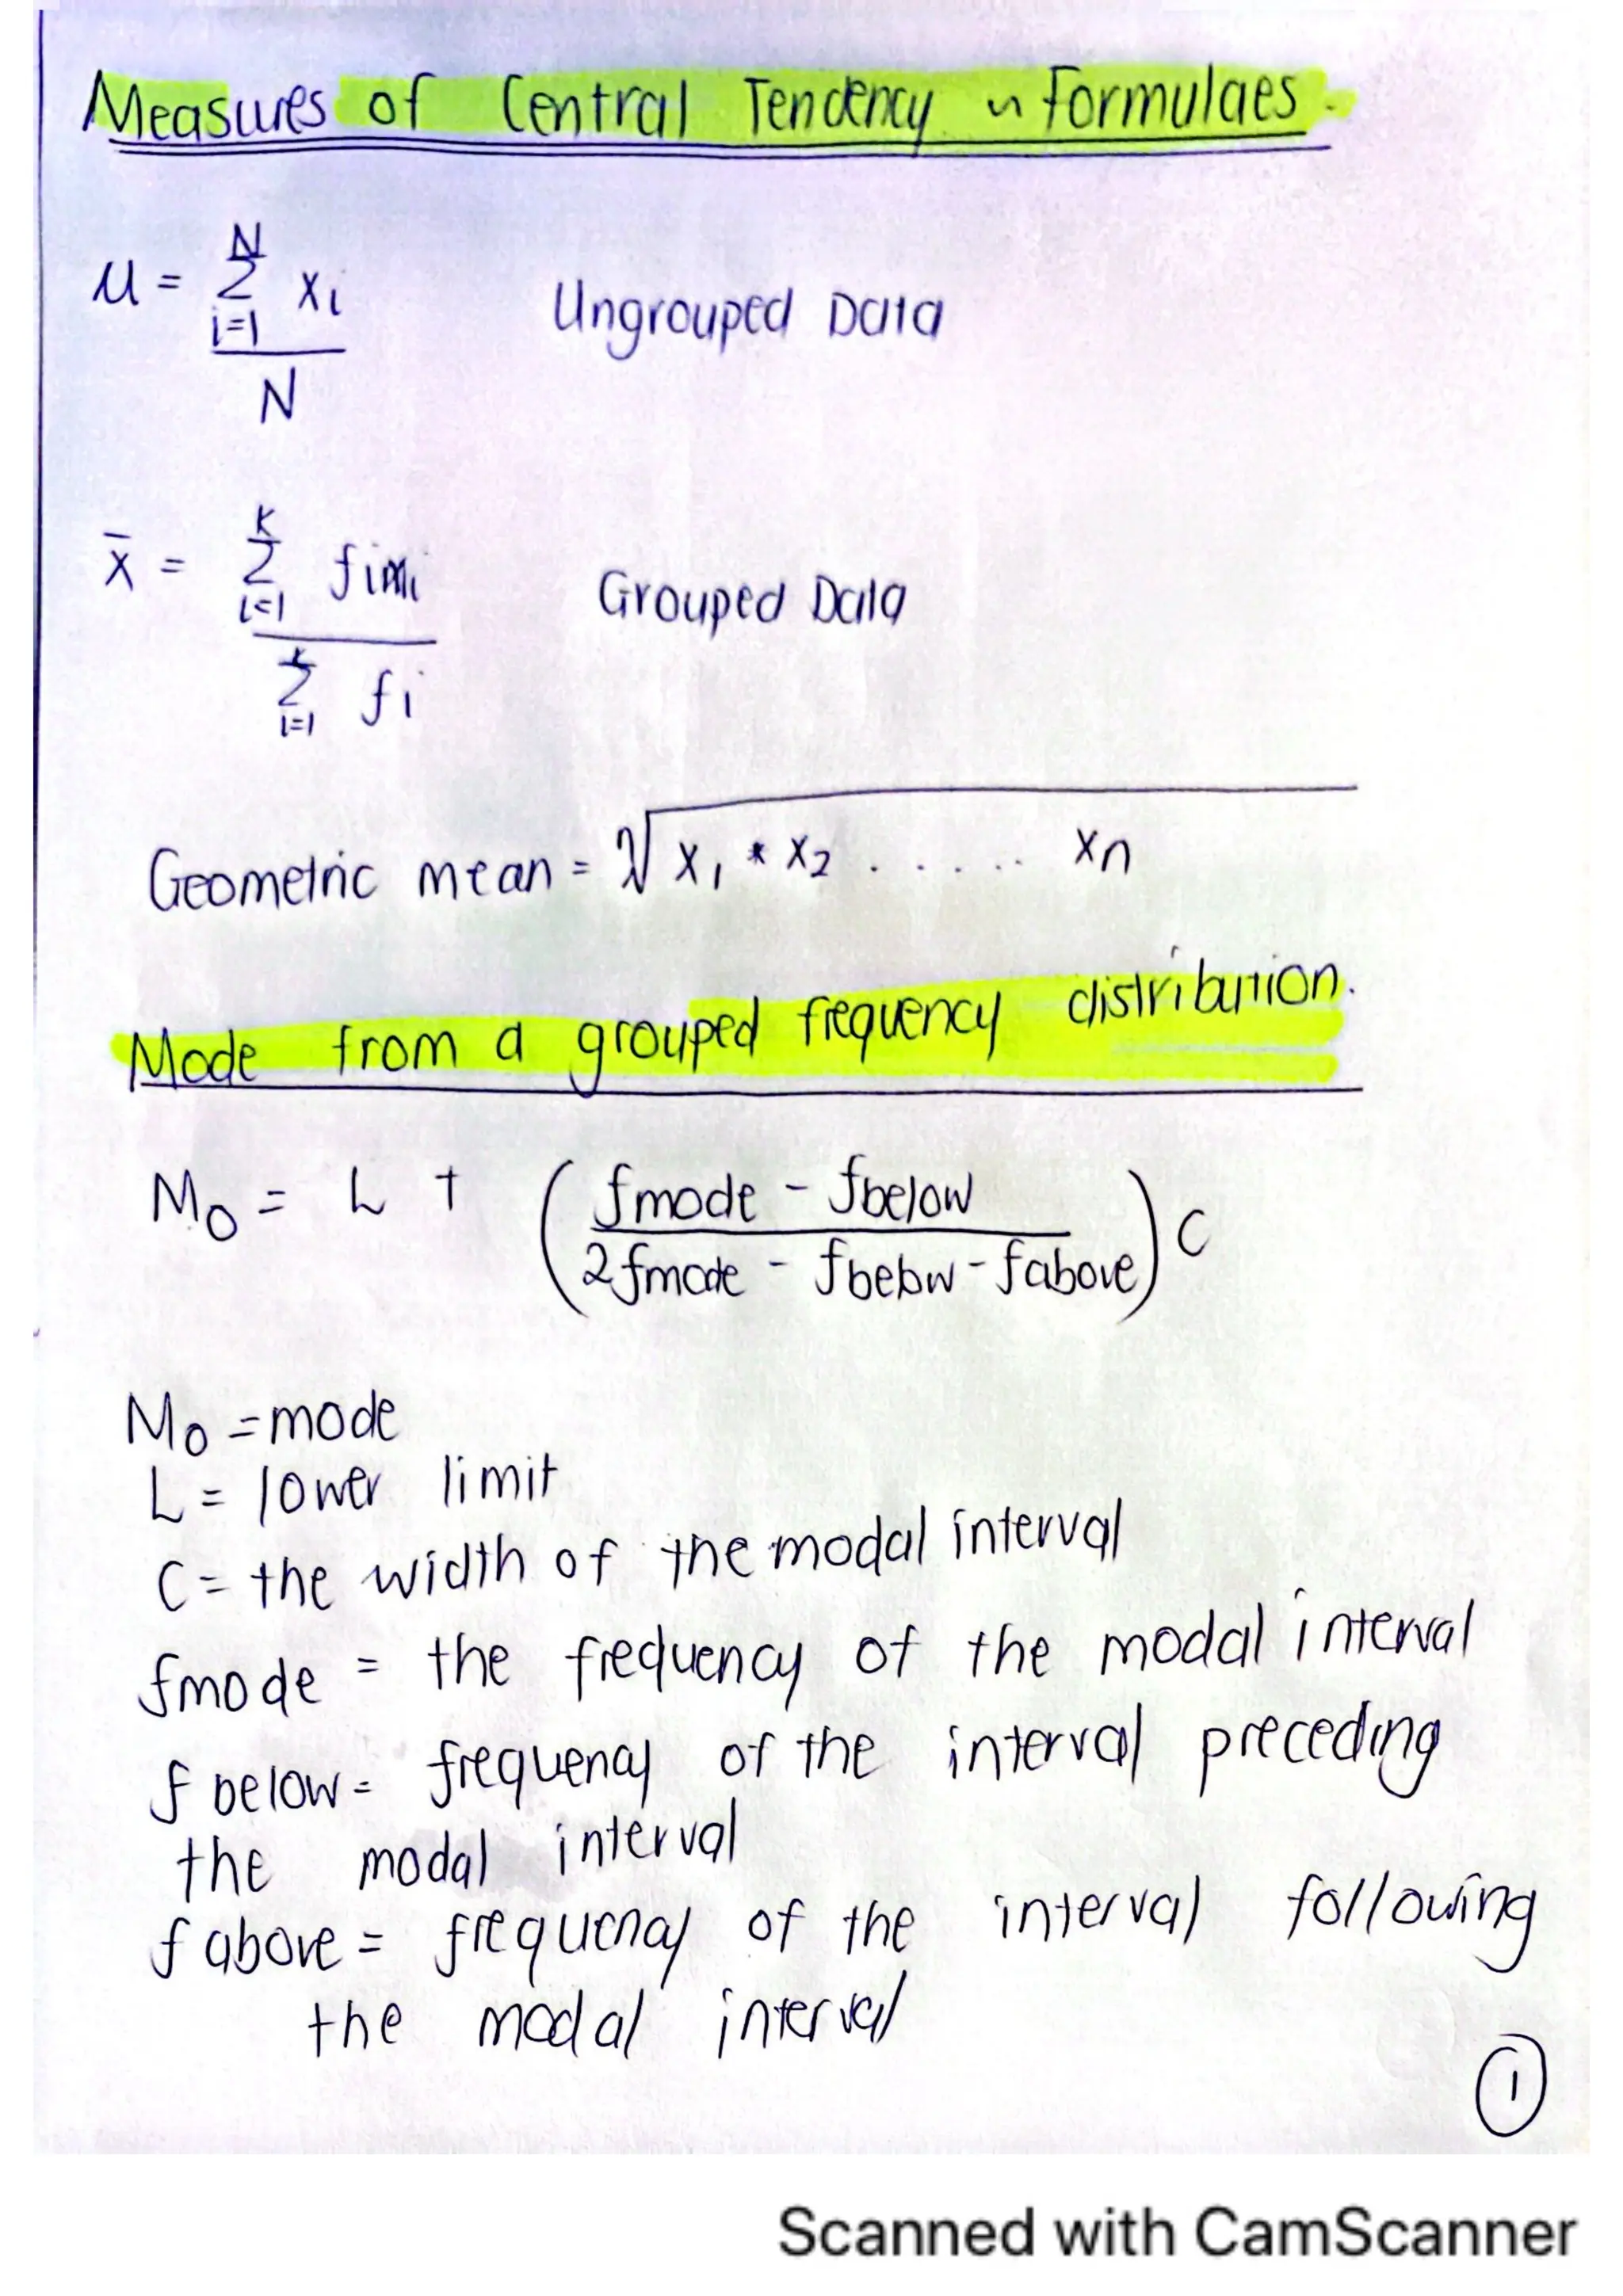 Measures of Central Tendency ~ formulaes.
μ = Σ xi
N
i=1
N
Ungrouped Data
x̄ = Σ fimi
k
i=1
Σ fi
k
i=1
Grouped Data
Geometric mean = n√ x1 * x2 . . . . . . xn
Mode from a grouped frequency distribution.
Mo = L + ( fmode - fbelow
2fmode - fbelow - fabove ) C
Mo = mode
L = lower limit
C = the width of the modal interval
fmode = the frequency of the modal interval
f below = frequency of the interval preceding
the modal interval
f above = frequency of the interval following
the modal interval
1
Scanned with CamScanner